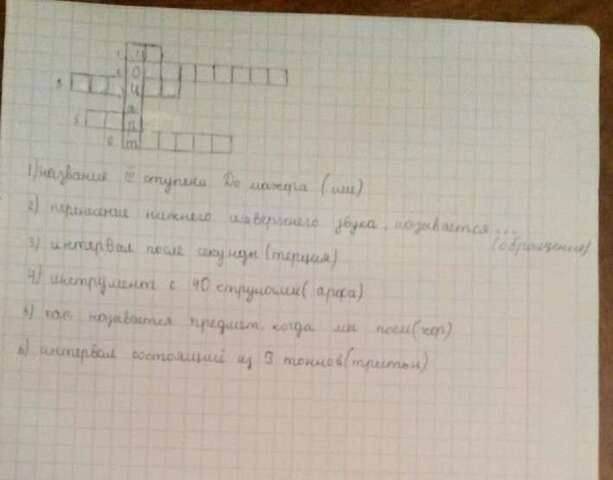 1
2
3
5
6
О
Ц
а
т
1) название III ступени До мажора (ми)
2) перенесение нижнего или верхнего звука, называется...
(обращение)
3) интервал после секунды (терция)
4) инструмент с 40 струнами (арфа)
5) как называется предмет, когда мы поем (хор)
6) интервал состоящий из 3 тоннов (тритон)